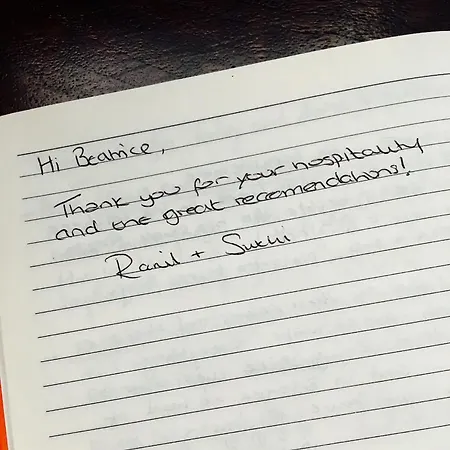 Hi Beatrice,
Thank you for your hospitality
and the great recomendations!
Ranil + Sukhi